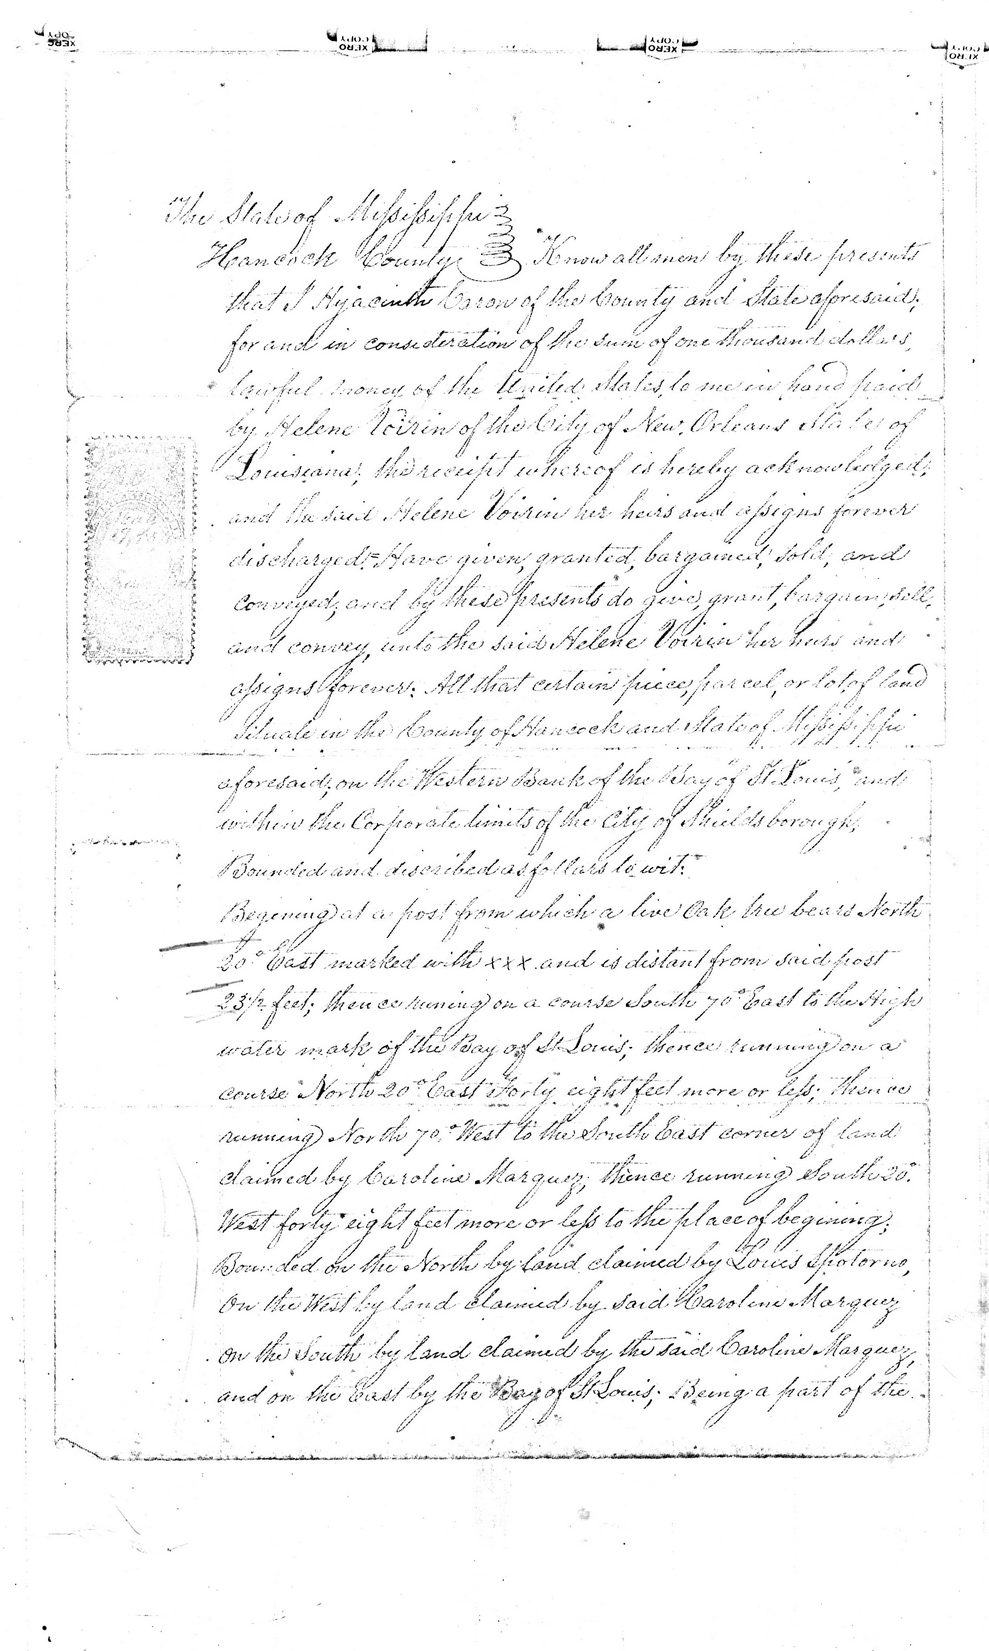 XERO COPY
XERO COPY
XERO COPY
XERO COPY
The State of Mississippi
Hancock County Know all men by these presents
that I Hyacinth Caron of the County and State aforesaid,
for and in consideration of the sum of one thousand dollars,
lawful money of the United States, to me in hand paid
by Helene Voirin of the City of New Orleans State of
Louisiana, the receipt whereof is hereby acknowledged;
and the said Helene Voirin her heirs and assigns forever
discharged: Have given, granted, bargained, sold, and
conveyed, and by these presents do give, grant, bargain, sell,
and convey, unto the said Helene Voirin her heirs and
assigns forever: All that certain piece, parcel, or lot of land
Situate in the County of Hancock and State of Mississippi
aforesaid, on the Western Bank of the Bay of St. Louis, and
within the Corporate limits of the City of Shieldsborough,
Bounded and discribed as follars to wit:
Begening at a post from which a live Oak tree bears North
20° East marked with xxx and is distant from said post
23½ feet; thence runing on a course South 70° East to the High
water mark of the Bay of St Louis; thence running on a
course North 20° East Forty eight feet more or less; thence
running North 70° West to the South East corner of land
claimed by Caroline Marquez; thence running South 20°
West forty eight feet more or less to the place of begining;
Bounded on the North by land claimed by Louis Spotorno,
On the West by land claimed by said Caroline Marquez
on the South by land claimed by the said Caroline Marquez,
and on the East by the Bay of St Louis; Being a part of the